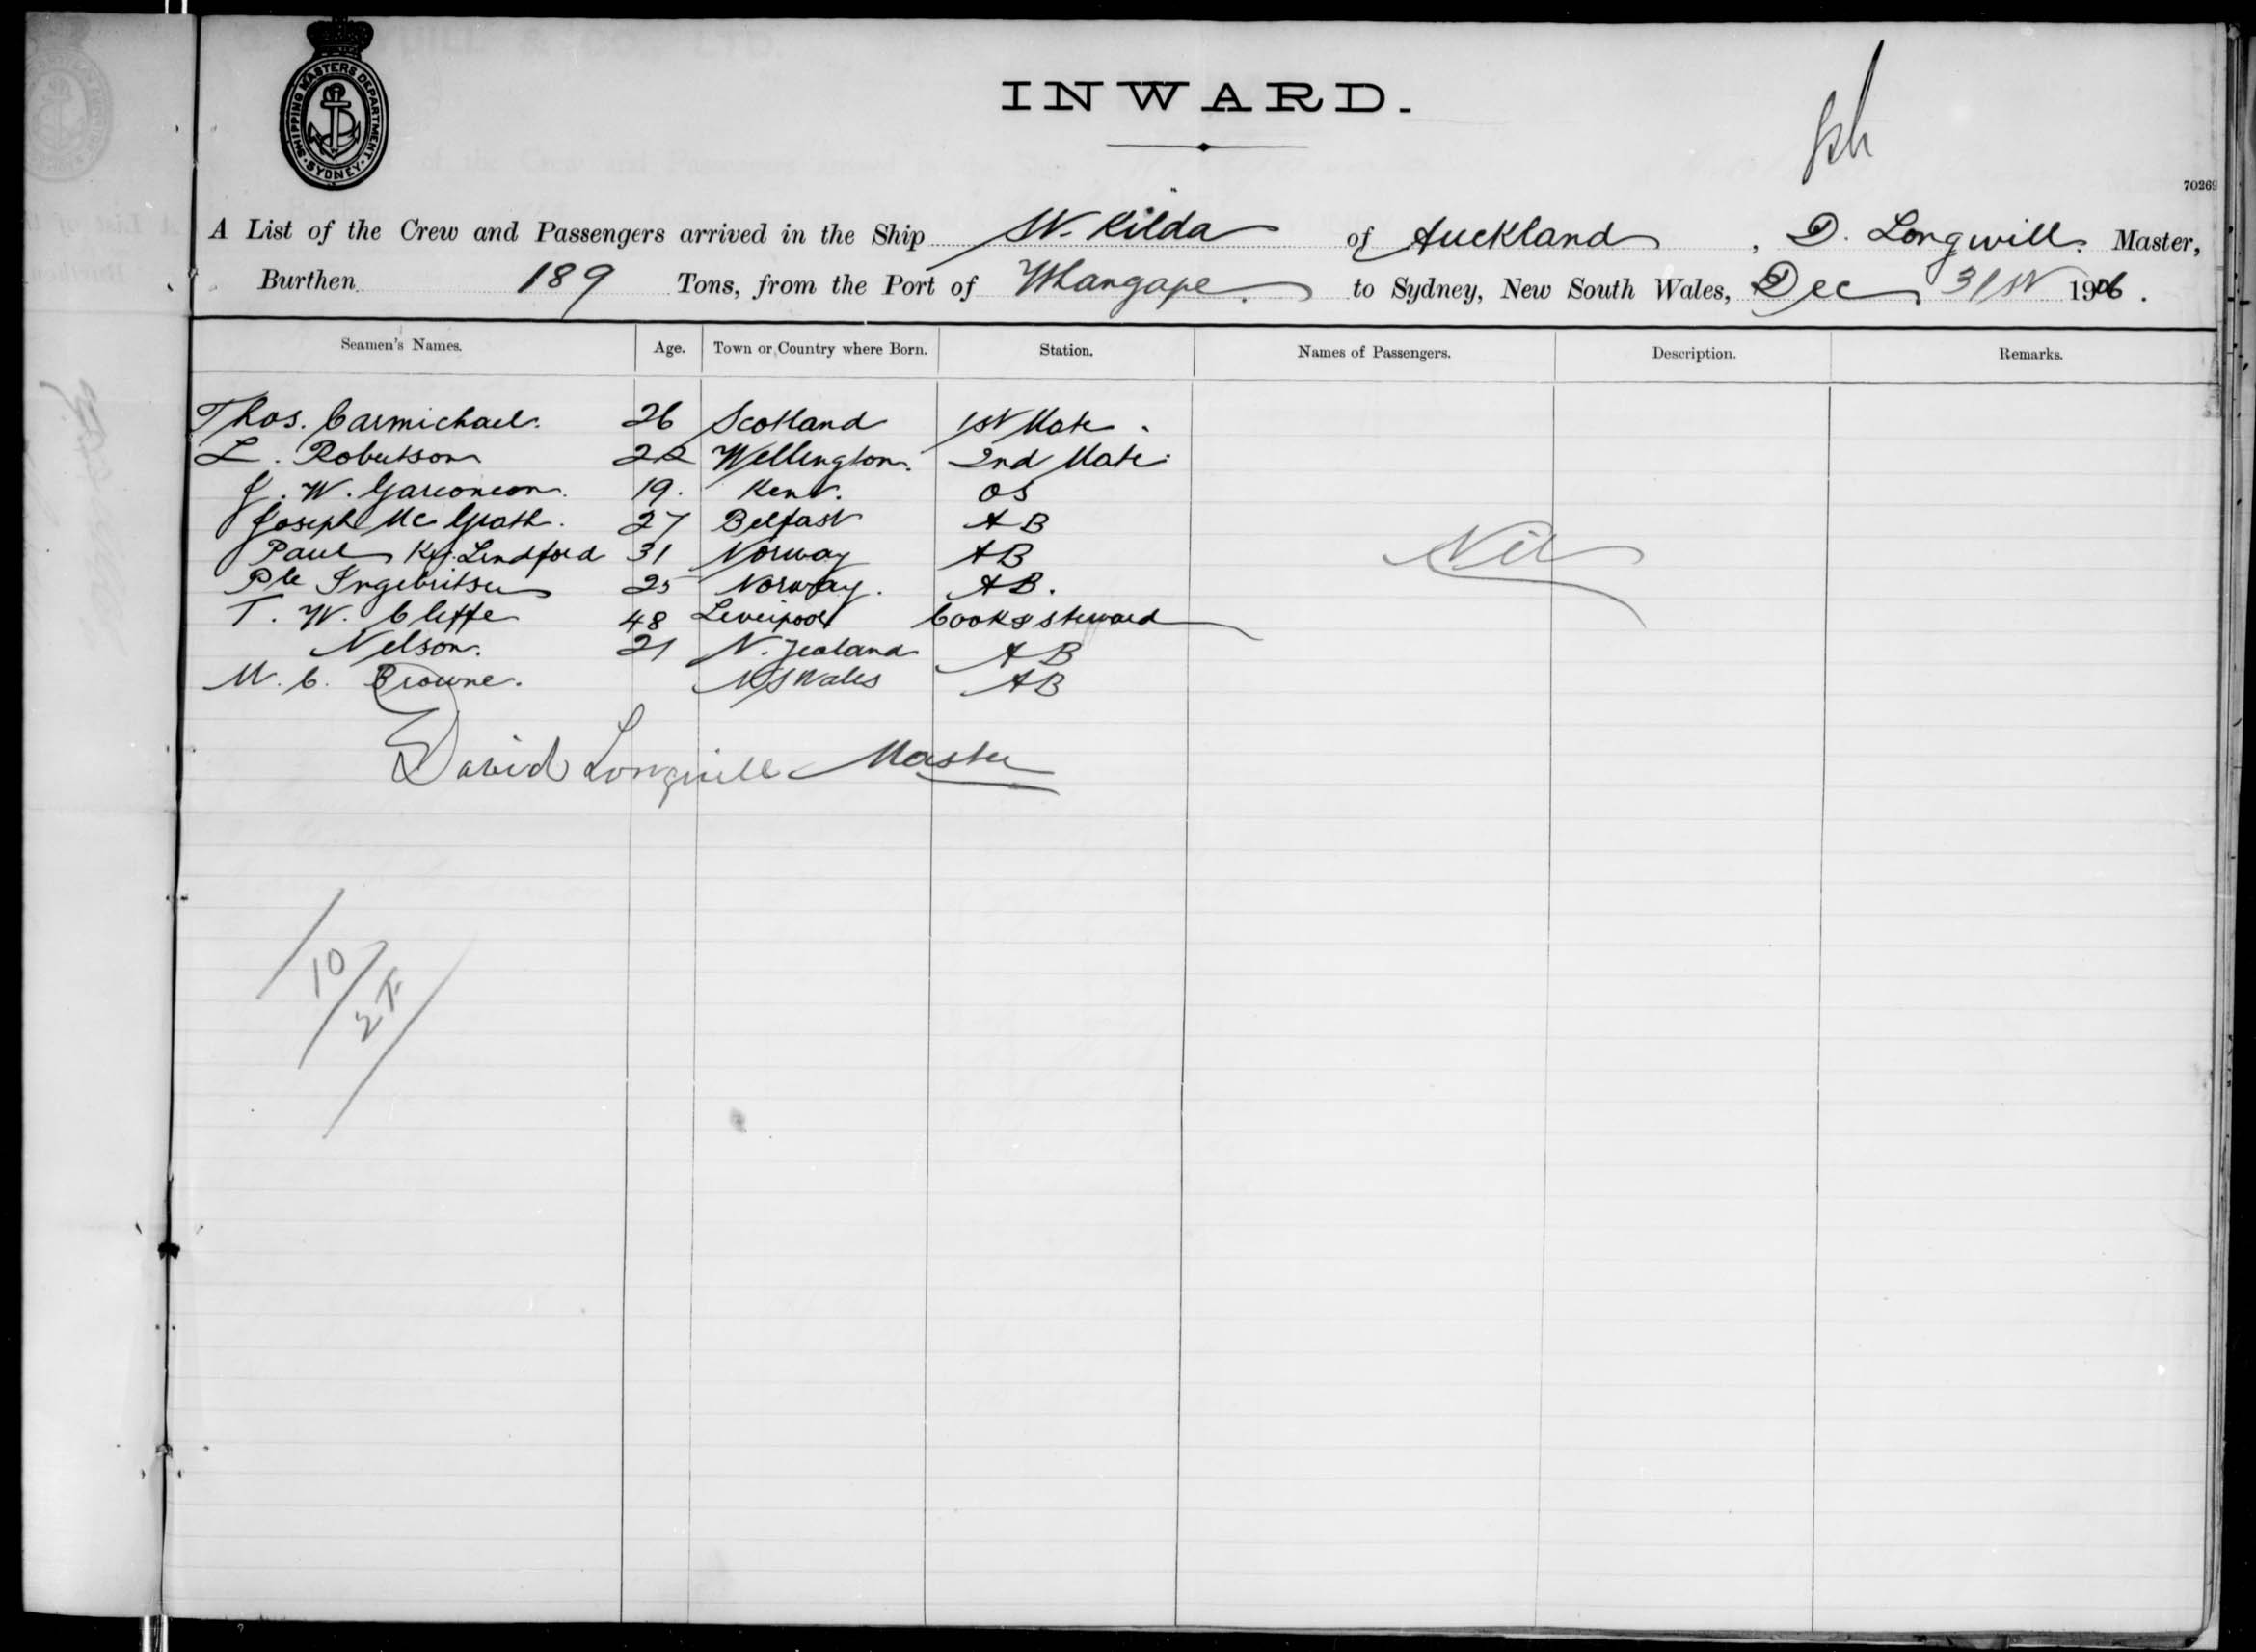 SHIPPING MASTERS DEPARTMENT. SYDNEY
INWARD.
70269
A List of the Crew and Passengers arrived in the Ship St. Kilda of Auckland, D. Longwill. Master,
Burthen 189 Tons, from the Port of Whangape. to Sydney, New South Wales, Dec 31st 1906.
Seamen's Names. Age. Town or Country where Born. Station. Names of Passengers. Description. Remarks.
Thos. Carmichael. 26 Scotland 1st Mate.
L. Robertson 22 Wellington. 2nd Mate.
J. W. 19. Kent. OS
Joseph McGrath. 27 Belfast AB
Paul Lindford 31 Norway AB
Nil
Ingebritsen 25 Norway. AB.
T. W. Cliffe 48 Liverpool Cook & Steward
Nelson. 21 N. Zealand AB
M. C. Browne. N S Wales AB
David Longwill Master
10
2 F